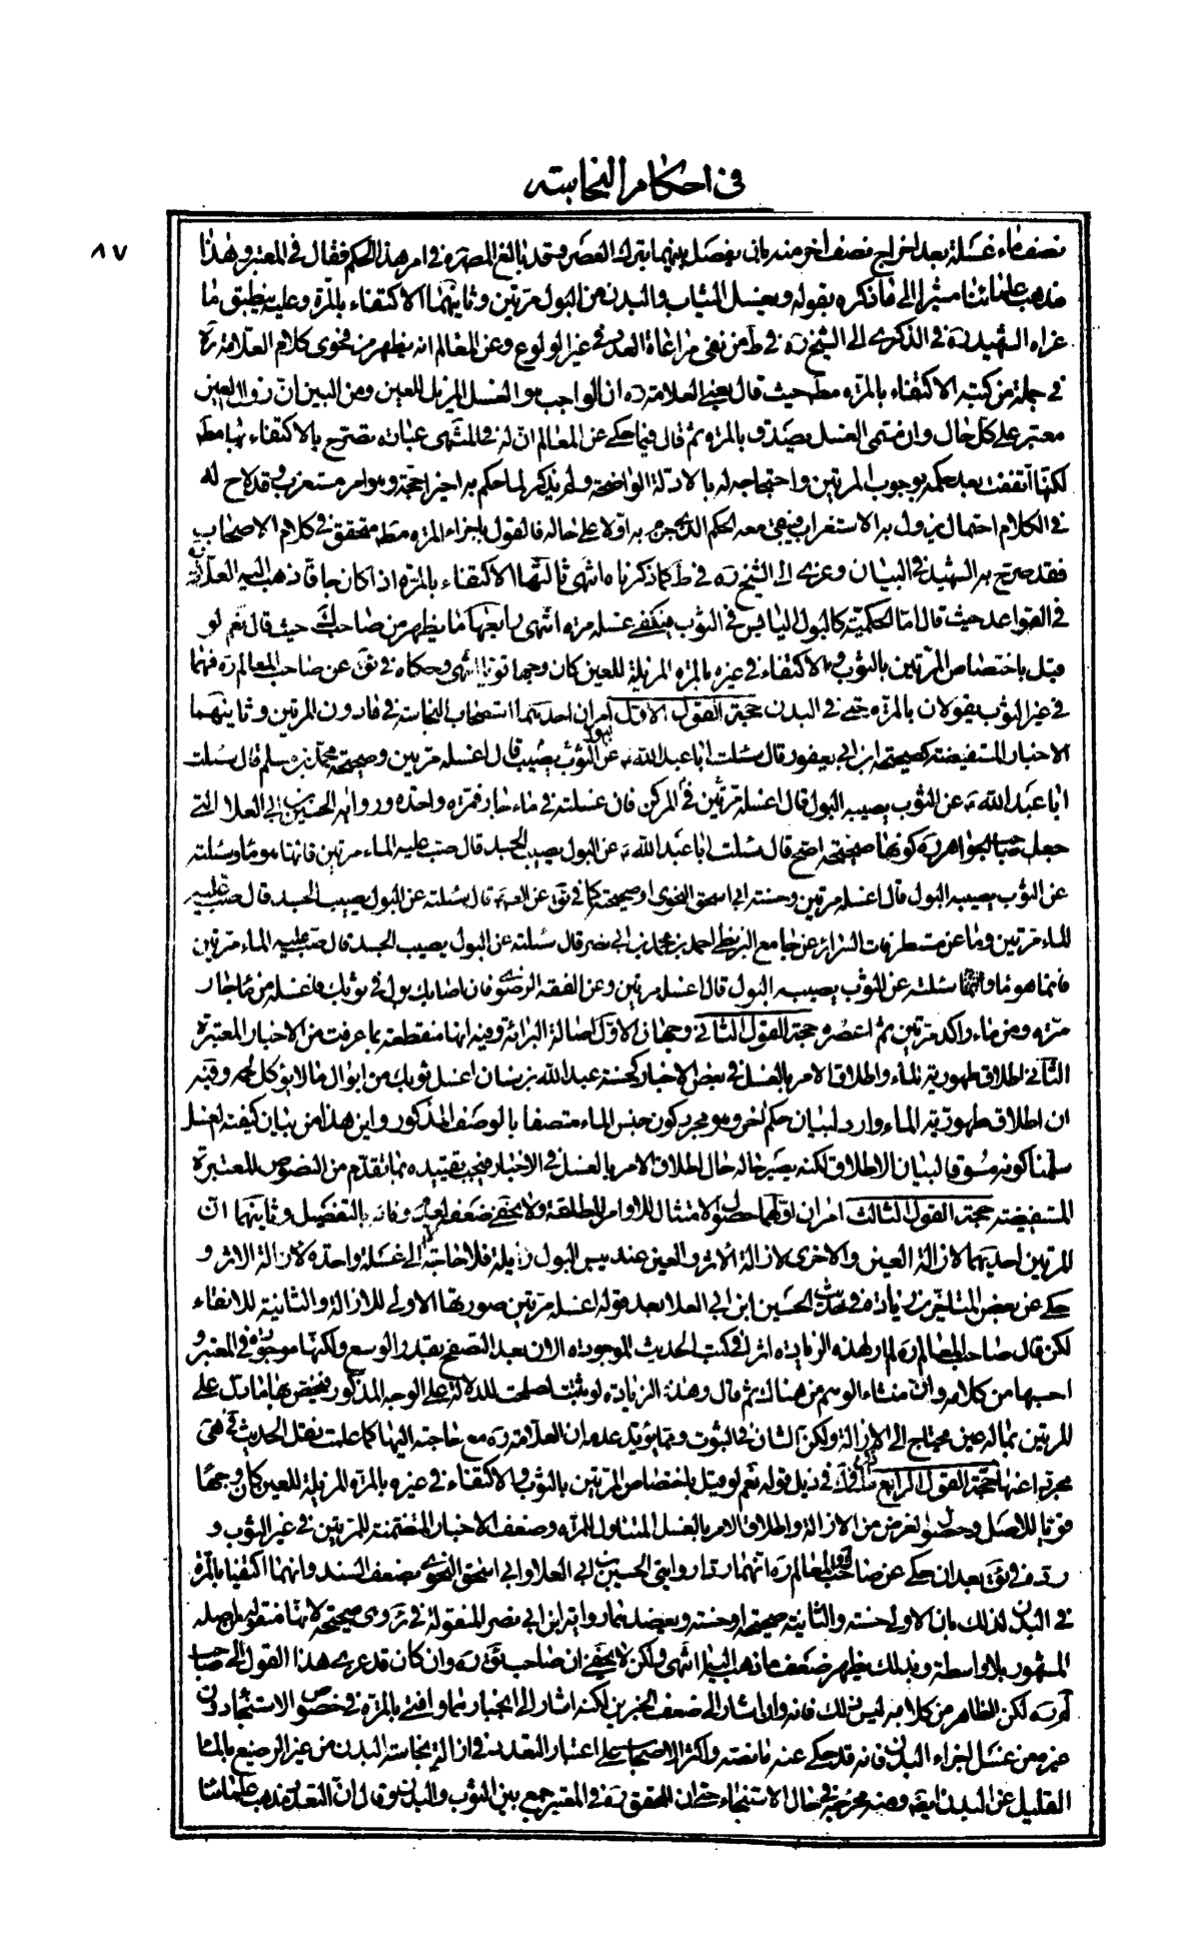 في احكام النجاسة
٨٧
نصف ماء غسلة بعد اخراج نصف اخر منه بان يفصل بينهما بترك العصر وقد بالغ المصرّ ره في امر هذا الحكم فقال في المعتبر وهذا
مذهب علمائنا مشيرا الى ما ذكره بقوله ويغسل الثياب والبدن من البول مرتين وثانيهما الاكتفاء بالمرّة وعليه ينطبق ما
عزاه الشهيد ره في الذكرى الى الشيخ ره في ط من نفي مراعاة العدد في غير الولوغ وعن المعالم انه يظهر من فحوى كلام العلامة ره
في جملة من كتبه الاكتفاء بالمرّة مط حيث قال يعني العلامة ره ان الواجب هو الغسل المزيل للعين ومن البين ان زوال العين
معتبر على كل حال وان مسمى الغسل يصدق بالمرة ثم قال فيما حكى عن المعالم ان له في المنتهى عبارة تصرح بالاكتفاء بها مط
لكنها اتفقت بعد حكمه بوجوب المرتين واحتجاجه له بالادلة الواضحة ولم يذكر لما حكم به اخيرا حجة وهو امر مستغرب وقد لاح له
في الكلام احتمال يزول به الاستغراب فيبقى معه الحكم الذي جزم به اولا على حاله فالقول باجزاء المرة مط متحقق في كلام الاصحاب
فقد صرح به الشهيد في البيان وعزى الى الشيخ ره في ط كما ذكرناه انتهى ثالثها الاكتفاء بالمرة اذا كان جافا ذهب اليه العلامة ره
في القواعد حيث قال اما الحكمية كالبول اليابس في الثوب فيكفي غسله مرة انتهى رابعها ما يظهر من صاحب لك حيث قال نعم لو
قيل باختصاص المرتين بالثوب والاكتفاء في غيره بالمرة المزيلة للعين كان وجها قويا انتهى وحكاه في ئق عن صاحب المعالم ره فهما
في غير الثوب يقولان بالمرة حتى في البدن حجة القول الاول امران احدهما استصحاب النجاسة في ما دون المرتين وثانيهما
الاخبار المستفيضة كصحيحة ابن ابي يعفور قال سئلت ابا عبد الله ع عن البول يصيب الثوب قال اغسله مرتين وصحيحة محمد بن مسلم قال سئلت
ابا عبد الله ع عن الثوب يصيبه البول قال اغسله مرتين في المركن فان غسلته في ماء جار فمرة واحدة ورواية الحسين بن ابي العلا التي
جعل صاحب الجواهر ره كونها صحيحة اصح قال سئلت ابا عبد الله ع عن البول يصيب الجسد قال صب عليه الماء مرتين فانما هو ماء وسئلته
عن الثوب يصيبه البول قال اغسله مرتين وحسنة ابي اسحق النحوي او صحيحته كما في ئق عن الصّ ع قال سئلته عن البول يصيب الجسد قال صب عليه
الماء مرتين وما عن مستطرفات السرائر عن جامع البزنطي احمد بن محمد بن ابي نصر قال سئلته عن البول يصيب الجسد قال صب عليه الماء مرتين
فانما هو ماء وسئلته عن الثوب يصيبه البول قال اغسله مرتين وعن الفقه الرضوي فان اصابك بول في ثوبك فاغسله من ماء جار
مرة ومن ماء راكد مرتين ثم اعصره حجة القول الثاني وجهان الاول اصالة البرائة وفيه انها منقطعة بما عرفت من الاخبار المعتبرة
الثاني اطلاق طهورية الماء واطلاق الامر بالغسل في بعض الاخبار كحسنة عبد الله بن سنان اغسل ثوبك من ابوال ما لا يؤكل لحمه وفيه
ان اطلاق طهورية الماء وارد لبيان حكم اخر وهو مجرد كون جنس الماء متصفا بالوصف المذكور واين هذا من بيان كيفية الغسل
سلمنا كونه مسوقا لبيان الاطلاق لكنه يصير حاله حال اطلاق الامر بالغسل في الاخبار فيجب تقييده بما تقدم من النصوص المعتبرة
المستفيضة حجة القول الثالث امران اولهما حصول الامتثال للاوامر المطلقة ولا يخفى ضعفه لعدم وفائه بالتفصيل وثانيهما ان
المرتين احديهما لازالة العين والاخرى لازالة الاثر والعين عند يبس البول زايلة فلا حاجة الا الى غسلة واحدة لازالة الاثر و
حكى عن بعض المتاخرين زيادة في حديث الحسين ابن ابي العلا بعد قوله اغسله مرتين صورتها الاولى للازالة والثانية للانقاء
لكن قال صاحب المعالم ره لم ار لهذه الزيادة اثرا في كتب الحديث الموجودة الان بعد التصفح بقدر الوسع ولكنها موجودة في المعتبر و
احسبها من كلامه وان منشاء الوهم من هناك ثم قال وهذه الزيادة لو ثبتت لصلحت للدلالة على الوجه المذكور فيختص بها ما دل على
المرتين بما له عين محتاج الى الازالة ولكن الشان في الثبوت ومما يؤيد عدمه ان العلامة ره مع حاجته اليها كما علمت نقل الحديث في هى
مجردا عنها حجة القول الرابع ما في لك في ذيل قوله نعم لو قيل باختصاص المرتين بالثوب والاكتفاء في غيره بالمرة المزيلة للعين كان وجها
قويا للاصل وحصول الغرض من الازالة واطلاق الامر بالغسل المتناول للمرة وضعف الاخبار المتضمنة للمرتين في غير الثوب و
رده في ئق بعد ان حكى عن صاحب المعالم ره انهما ردا روايتي الحسين بن ابي العلا وابي اسحق النحوي بضعف السند وانهما اكتفيا بالمرة
في البدن لذلك بان الاولى حسنة والثانية صحيحة او حسنة ويعضدهما رواية ابن ابي نصر المنقولة في ئر وهي صحيحة لانها منقولة من اصله
المشهور بلا واسطة وبذلك يظهر ضعف ما ذهب اليه انتهى ولكن لا يخفى ان صاحب ئق ره وان كان قد عزى هذا القول الى صاحب
لم ره لكن الظاهر من كلامه ليس ذلك فانه وان اشار الى ضعف الخبرين لكنه اشار الى انجبارهما وافتى بالمرة في خصوص الاستنجاء دون
غيره من غسل اجزاء البدن فانه قد حكى عنه ما نصه واكثر الاصحاب على اعتبار التعدد في ازالة نجاسة البدن من غير الرضيع بالماء
القليل عن البدن ايضا ومنه مخرجه في حال الاستنجاء حتى ان المحقق ره في المعتبر جمع بين الثوب والبدن وقال ان التعدد مذهب علمائنا